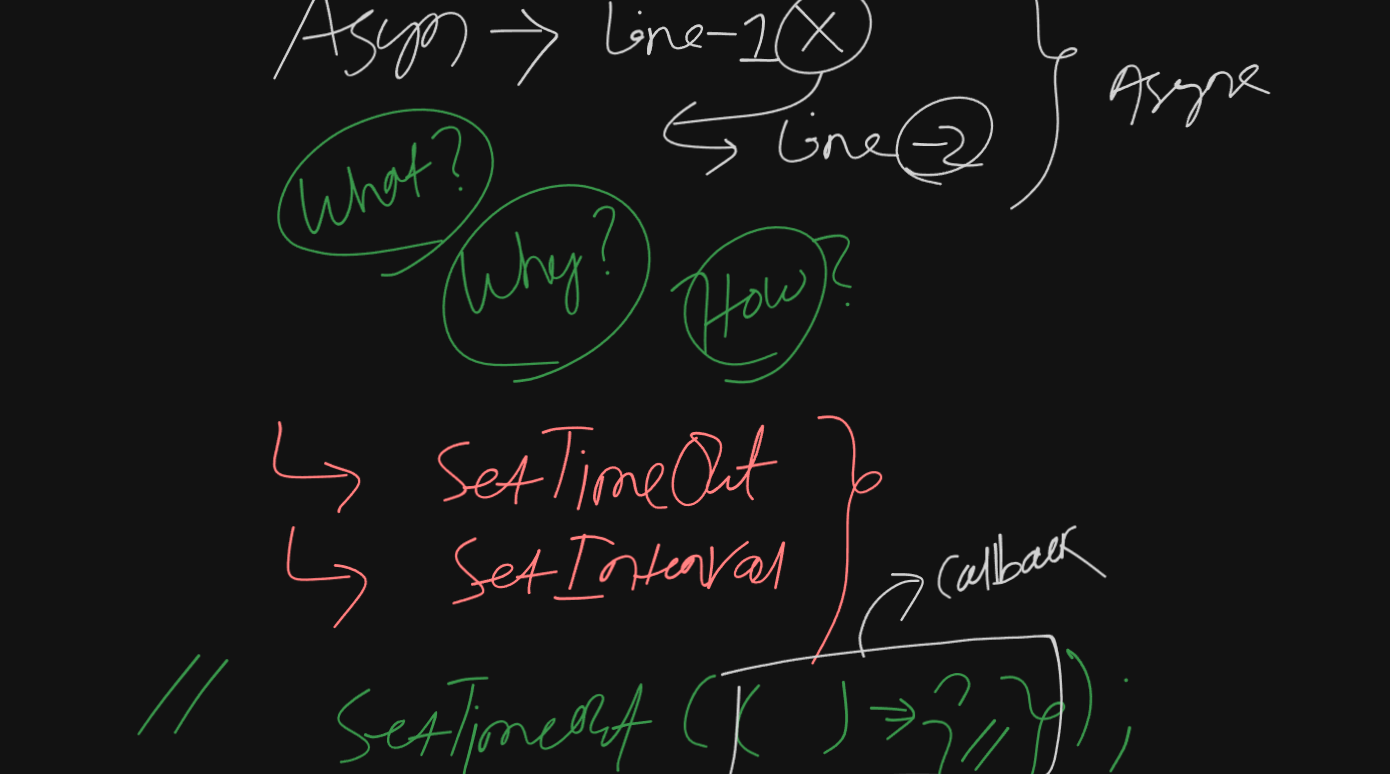 Asyn → Line-1 X
Line-2
Async
What?
Why?
How?
SetTimeOut
SetInterval
Callback
// SetTimeOut (( ) => { // });